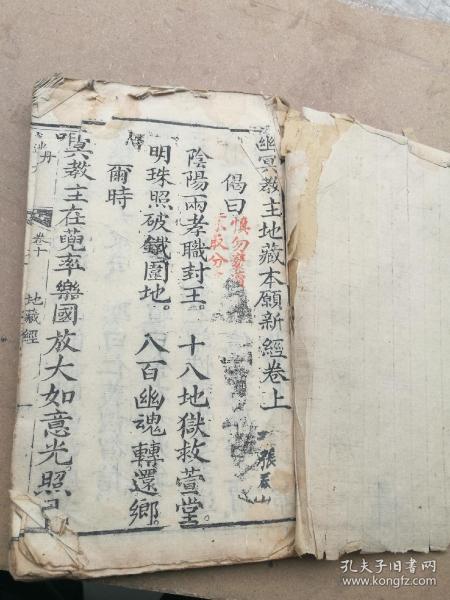 幽冥教主地藏本願新經卷上
偈曰
慎勿褻瀆
張石山
陰陽兩孝職封王。十八地獄救萱堂
明珠照破鐵圍地。八百幽魂轉還鄉。
爾時
冥教主在蔸率樂國放大如意光照
卷十
地藏經
孔夫子旧书网
www.kongfz.com